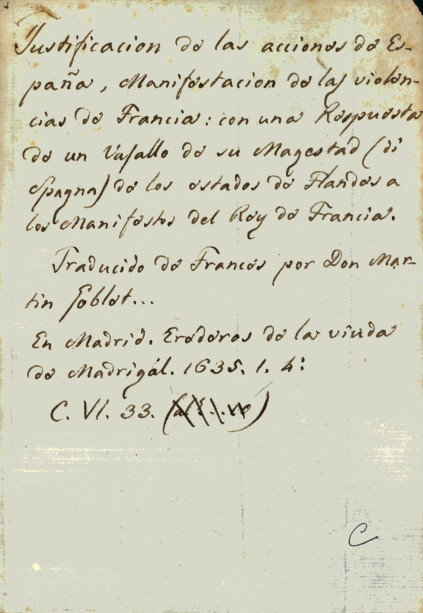 Justificacion de las acciones de Es-
paña, Manifestacion de las violen-
cias de Francia: con una Respuesta
de un Vasallo de su Magestad (di
Spagna) de los estados de Flandes a
los Manifestos del Rey de Francia.
Traducido de Frances por Don Mar-
tin Goblet...
En Madrid. Erederos de la viuda
de Madrigál. 1635. 1. 4:
C. VI. 33.
C